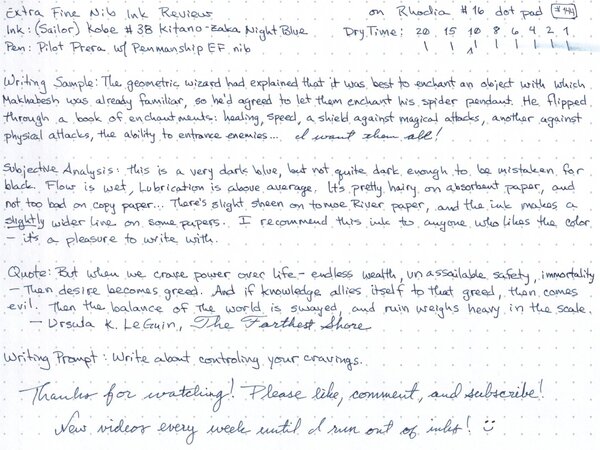 Extra Fine Nib Ink Review on Rhodia #16 dot pad #44
Ink: (Sailor) Kobe #38 Kitano-zaka Night Blue Dry Time: 20 15 10 8 6 4 2 1
Pen: Pilot Prera w/ Penmanship EF nib
Writing Sample: The geometric wizard had explained that it was best to enchant an object with which
Makhabesh was already familiar, so he'd agreed to let them enchant his spider pendant. He flipped
through a book of enchantments: healing, speed, a shield against magical attacks, another against
physical attacks, the ability to entrance enemies... I want them all!
Subjective Analysis: this is a very dark blue, but not quite dark enough to be mistaken for
black. Flow is wet, Lubrication is above average. It's pretty hairy on absorbent paper, and
not too bad on copy paper... There's slight sheen on tomoe River paper, and the ink makes a
slightly wider line on some papers. I recommend this ink to anyone who likes the color
- it's a pleasure to write with.
Quote: But when we crave power over life - endless wealth, unassailable safety, immortality
- Then desire becomes greed. And if knowledge allies itself to that greed, then comes
evil. Then the balance of the world is swayed, and ruin weighs heavy in the scale.
- Ursula K. LeGuin, The Farthest Shore
Writing Prompt: Write about controling your cravings.
Thanks for watching! Please like, comment, and subscribe!
New videos every week until I run out of inks!